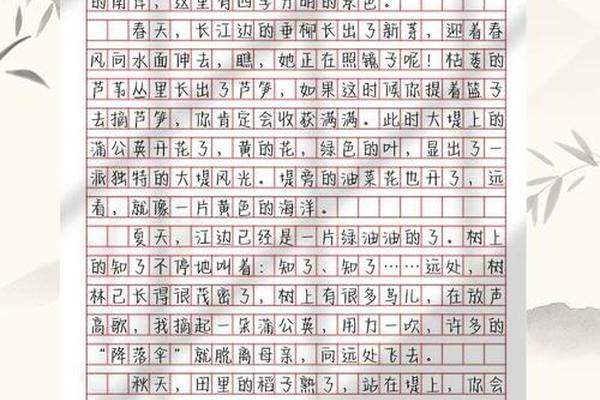 的南岸，这里有四季分明的景色。
春天，长江边的垂柳长出了新芽，迎着春
风向水面伸去，瞧，她正在照镜子呢！枯萎的
芦苇丛里长出了芦笋，如果这时候你提着篮子
去摘芦笋，你肯定会收获满满。此时大堤上的
蒲公英开花了，黄的花，绿色的叶，显出了一
派独特的大堤风光。堤旁的油菜花也开了，远
看，就像一片黄色的海洋。
夏天，江边已经是一片绿油油的了。树上
的知了不停地叫着：知了、知了……远处，树
林已长得很茂密了，树上有很多鸟儿，在放声
高歌，我摘起一朵蒲公英，用力一吹，许多的
“降落伞”就脱离母亲，向远处飞去。
秋天，田里的稻子熟了，站在堤上，你会